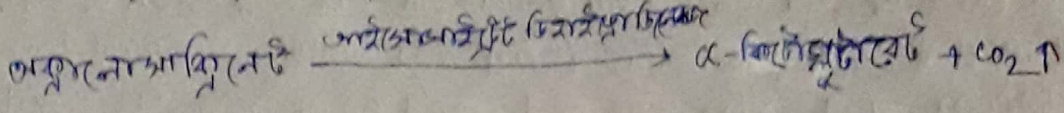 অক্সালোসাক্সিনেট আইসোসাইট্রেট ডিহাইড্রোজিনেজ → α-কিটোগ্লুটারেট + CO₂ ↑